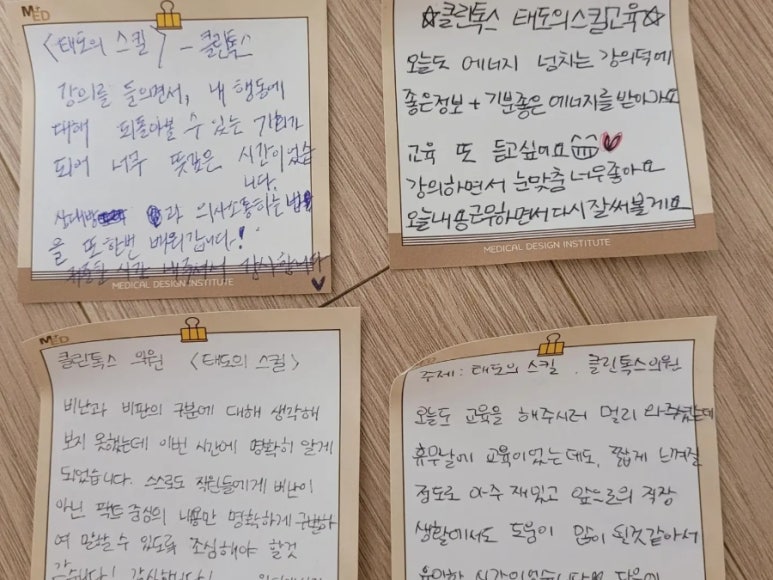 MED
<태도의 스킬> - 클린톡스
강의를 들으면서, 내 행동에
대해 되돌아볼 수 있는 기회가
되어 너무 뜻깊은 시간이었습
니다.
상대방과 의사소통하는 법
을 또 한번 배워갑니다!
시간 내주셔서 감사합니다
MEDICAL DESIGN INSTITUTE
☆클린톡스 태도의스킬교육☆
오늘도 에너지 넘치는 강의덕에
좋은정보 + 기분좋은 에너지를 받아가요
교육 또 듣고싶어요
강의하면서 눈맞춤 너무좋아요
오늘내용근무하면서다시 잘써볼게요
MEDICAL DESIGN INSTITUTE
MED
클린톡스 의원 <태도의 스킬>
비난과 비판의 구분에 대해 생각해
보지 못했는데 이번 시간에 명확히 알게
되었습니다. 스스로도 직원들에게 비난이
아닌 팩트 중심의 내용만 명확하게 구분하
여 말할 수 있도록 조심해야 할것
같습니다! 감사합니다!
MED
주제: 태도의 스킬. 클린톡스의원
오늘도 교육을 해주시러 멀리 와주셨는데
휴무날에 교육이었는데도, 짧게 느껴질
정도로 아주 재밌고 앞으로의 직장
생활에서도 도움이 많이 될것같아서
유익한 시간이었습니다